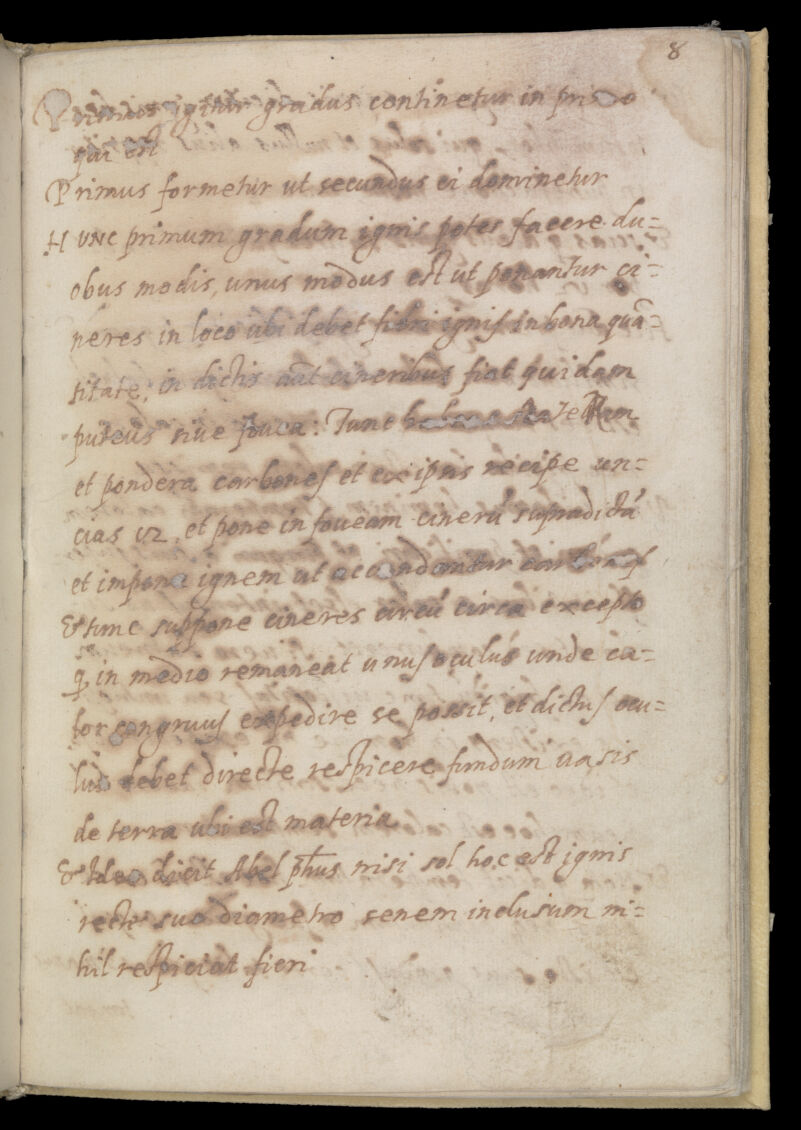 8
Primus igitur gradus continetur in primo
qui est
Primus formetur ut secundus ei dominetur
Hunc primum gradum ignis potes facere du=
obus modis, unus modus est ut ponantur ci=
neres in loco ubi debet fieri ignis in bona quā=
titate, in dictis aūt cineribus fiat quidam
puteus sive fovea: Tunc
et pondera carbones et ex ipsis recipe un=
cias 12, et pone in foveam cinerū supradictā
et impone ignem ut accendantur carbones
& tunc suppone cineres circū circa excepto
q, in medio remaneat unus oculus unde ca=
lor congruus expedire se possit, et dictus ocu=
lus debet directe respicere fundum vasis
de terra ubi est materia
& Ideo dicit Abel ph̄us nisi sol hoc est ignis
recte suo diametro senem inclusum ni=
hil respiciat fieri